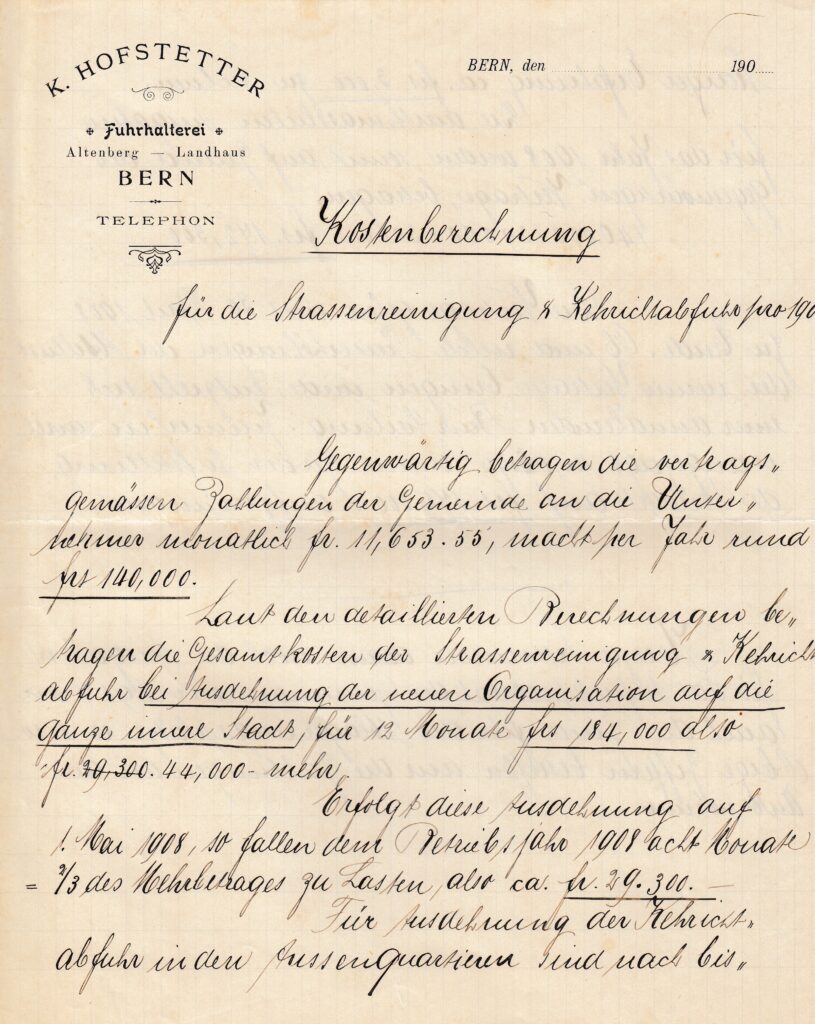 K. HOFSTETTER
Fuhrhalterei
Altenberg — Landhaus
BERN
TELEPHON
BERN, den 190
Kostenberechnung
für die Strassenreinigung & Kehrichtabfuhr pro 190
Gegenwärtig betragen die vertrags„
gemässen Zahlungen der Gemeinde an die Unter„
nehmer monatlich fr. 11,653.55, macht per Jahr rund
frs 140,000.
Laut den detaillierten Berechnungen be„
tragen die Gesamtkosten der Strassenreinigung & Kehricht
abfuhr bei Ausdehnung der neuen Organisation auf die
ganze innere Stadt, für 12 Monate frs 184,000 also
fr. 29,300. 44,000 - mehr
Erfolgt diese Ausdehnung auf
1. Mai 1908, so fallen dem Betriebsjahr 1908 acht Monate
= 2/3 des Mehrbetrages zu Lasten, also ca. fr. 29.300. —
Für Ausdehnung der Kehricht„
abfuhr in den Aussenquartieren sind nach bis„